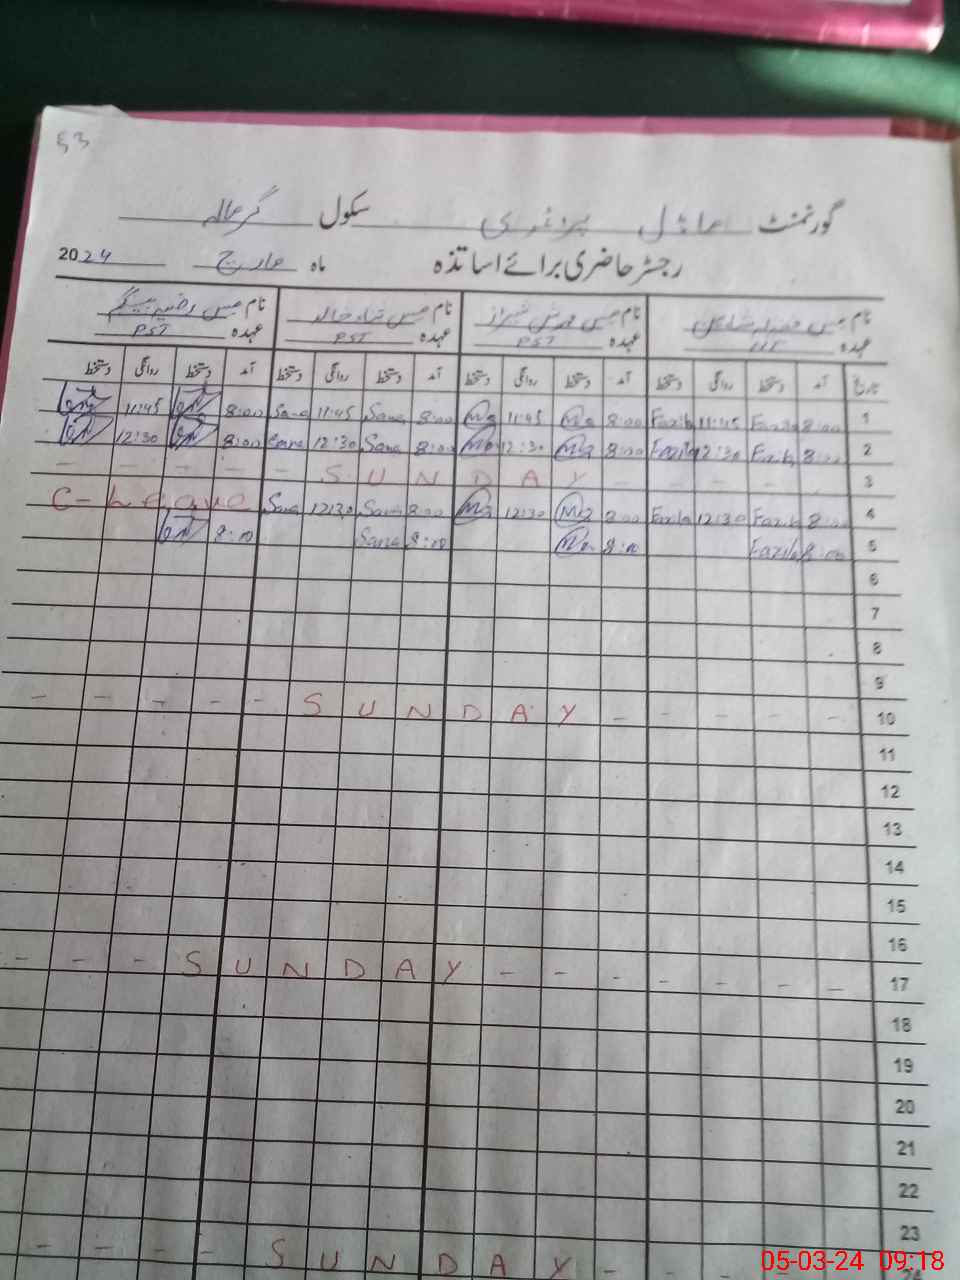 53
گورنمنٹ ماڈل پرائمری سکول گرھالہ
رجسٹر حاضری برائے اساتذہ ماہ مارچ 2024
نام مس نام مس نام مس ثناء خالد نام مس رضیہ بیگم
عہدہ عہدہ PST عہدہ PST عہدہ PST
تاریخ آمد دستخط روانگی دستخط آمد دستخط روانگی دستخط آمد دستخط روانگی دستخط آمد دستخط روانگی دستخط
11:45 8:00 Sana 11:45 Sana 8:00 11:45 8:00 Fazila 11:45 Fazila 8:00 1
12:30 8:00 Sana 12:30 Sana 8:00 12:30 8:00 Fazila 12:30 Fazila 8:00 2
- - - - - S U N D A Y - - - - - 3
C - Leave Sana 12:30 Sana 8:00 12:30 8:00 Fazila 12:30 Fazila 8:00 4
8:00 Sana 8:00 8:00 Fazila 8:00 5
6
7
8
9
- - - - - S U N D A Y - - - - - 10
11
12
13
14
15
16
- - - S U N D A Y - - - - - - - 17
18
19
20
21
22
23
- - - - S U N D A Y - - - 24
05-03-24 09:18